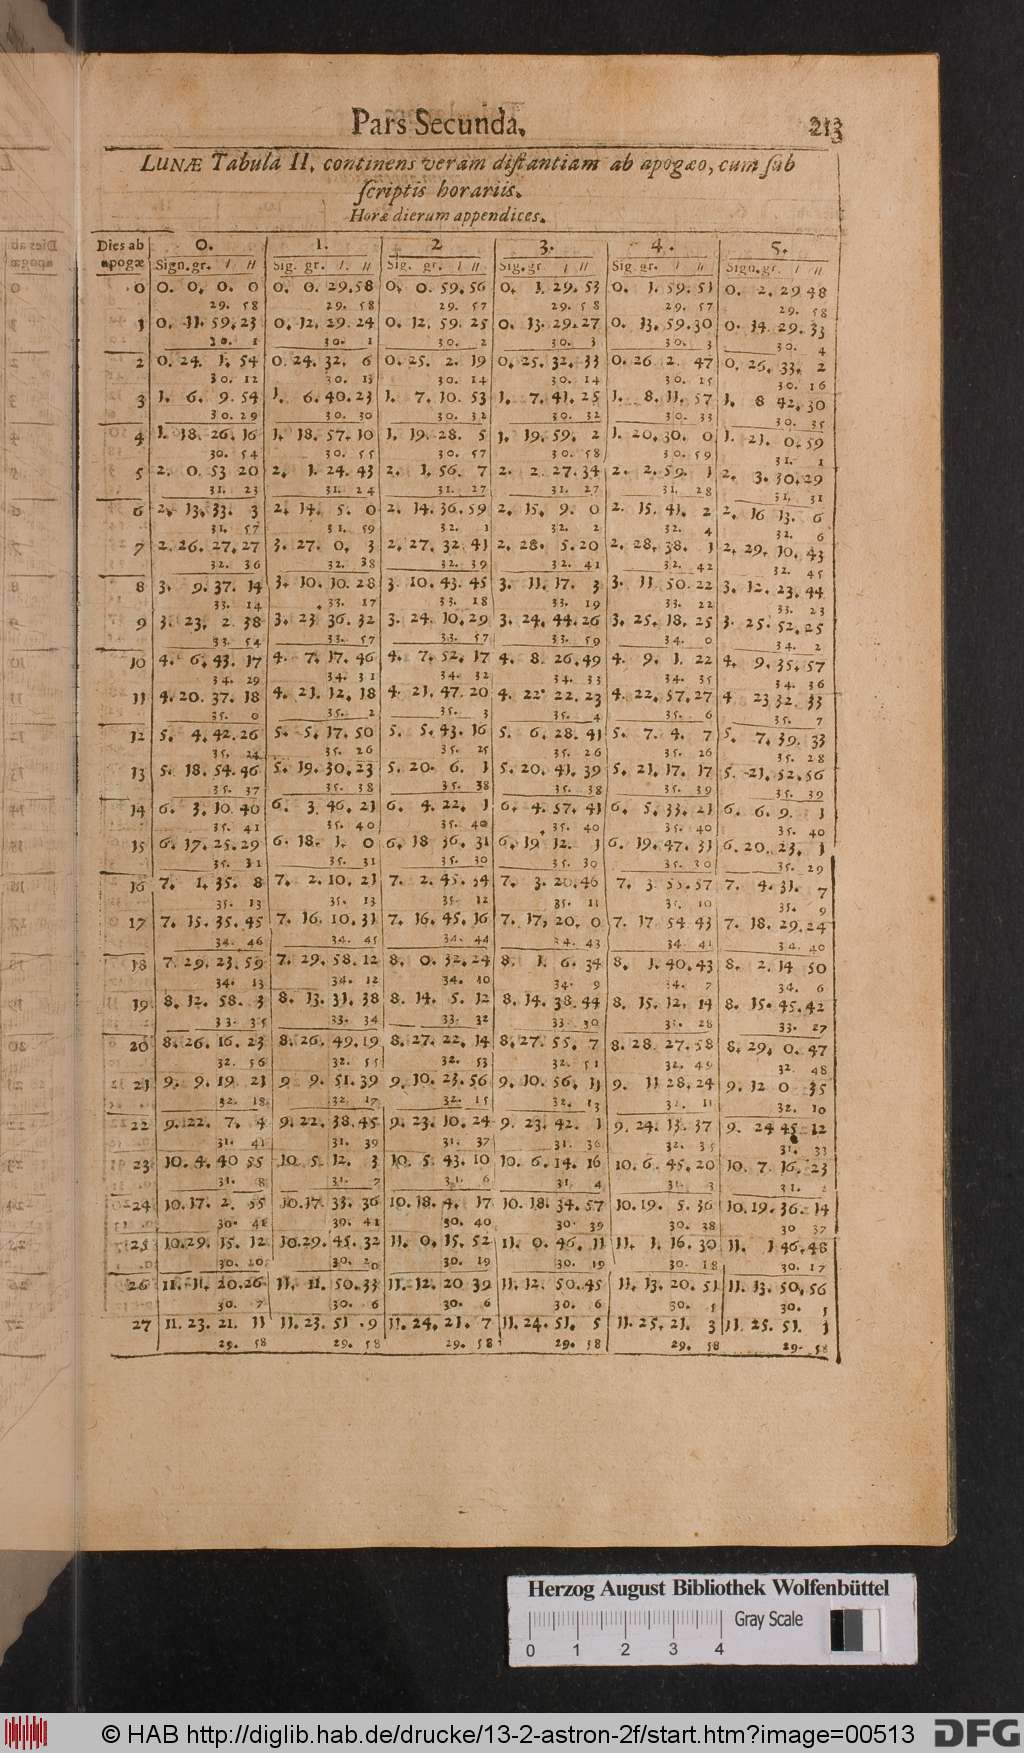 Pars Secunda.
213
LUNÆ Tabula II, continens veram distantiam ab apogæo, cum sub
scriptis horariis.
Horæ dierum appendices.
Dies ab apogæ 0. 1. 2 3. 4. 5.
Sign.gr. / // Sig. gr. /. // Sig. gr. / // Sig.gr / // Sig.gr. / // Sign.gr. / //
0 0. 0. 0. 0 0. 0. 29.58 0. 0. 59.56 0. 1. 29. 53 0. 1. 59. 51 0. 2. 29 48
29. 58 29. 58 29. 57 29. 58 29. 57 29. 58
1 0. 11. 59. 23 0. 12. 29. 24 0. 12. 59. 25 0. 13. 29. 27 0. 13. 59. 30 0. 14. 29. 33
30. 1 30. 1 30. 2 30. 3 30. 3 30. 4
2 0. 24. 1. 54 0. 24. 32. 6 0. 25. 2. 19 0. 25. 32. 33 0. 26 2. 47 0. 26. 33. 2
30. 12 30. 13 30. 14 30. 14 30. 15 30. 16
3 1. 6. 9. 54 1. 6. 40. 23 1. 7. 10. 53 1. 7. 41. 25 1. 8. 11. 57 1. 8 42. 30
30. 29 30. 30 30. 32 30. 32 30. 33 30. 35
4 1. 18. 26. 16 1. 18. 57. 10 1. 19. 28. 5 1. 19. 59. 2 1. 20. 30. 0 1. 21. 0. 59
30. 54 30. 55 30. 57 30. 58 30. 59 31. 1
5 2. 0. 53 20 2. 1. 24. 43 2. 1. 56. 7 2. 2. 27. 34 2. 2. 59. 1 2. 3. 30. 29
31. 23 31. 24 31. 27 31. 27 31. 28 31. 31
6 2. 13. 33. 3 2. 14. 5. 0 2. 14. 36. 59 2. 15. 9. 0 2. 15. 41. 2 2. 16 13. 6
31. 57 31. 59 32. 1 32. 2 32. 4 32. 6
7 2. 26. 27. 27 3. 27. 0. 3 2. 27. 32. 41 2. 28. 5. 20 2. 28. 38. 1 2. 29. 10. 43
32. 36 32. 38 32. 39 32. 41 32. 42 32. 45
8 3. 9. 37. 14 3. 10. 10. 28 3. 10. 43. 45 3. 11. 17. 3 3. 11 50. 22 3. 12. 23. 44
33. 14 33. 17 33. 18 33. 19 33. 22 33. 23
9 3. 23. 2. 38 3. 23 36. 32 3. 24. 10. 29 3. 24. 44. 26 3. 25. 18. 25 3. 25. 52. 25
33. 54 33. 57 33. 57 33. 59 34. 0 34. 2
10 4. 6. 43. 17 4. 7. 17. 46 4. 7. 52. 17 4. 8. 26. 49 4. 9. 1. 22 4. 9. 35. 57
34. 29 34. 31 34. 32 34. 33 34. 35 34. 36
11 4. 20. 37. 18 4. 21. 12. 18 4. 21. 47. 20 4. 22. 22. 23 4. 22. 57. 27 4. 23 32. 33
35. 0 35. 2 35. 3 35. 4 35. 6 35. 7
12 5. 4. 42. 26 5. 5. 17. 50 5. 5. 43. 16 5. 6. 28. 41 5. 7. 4. 7 5. 7. 39. 33
35. 24 35. 26 35. 25 35. 26 35. 26 35. 28
13 5. 18. 54. 46 5. 19. 30. 23 5. 20. 6. 1 5. 20. 41. 39 5. 21. 17. 17 5. 21. 52. 56
35. 37 35. 38 35. 38 35. 38 35. 39 35. 39
14 6. 3. 10. 40 6. 3. 46. 21 6. 4. 22. 1 6. 4. 57. 41 6. 5. 33. 21 6. 6. 9. 1
35. 41 35. 40 35. 40 35. 40 35. 40 35. 40
15 6. 17. 25. 29 6. 18. 1. 0 6. 18 36. 31 6. 19 12. 1 6. 19. 47. 31 6. 20. 23. 1
35. 31 35. 31 35. 30 35. 30 35. 30 35. 29
16 7. 1. 35. 8 7. 2. 10. 21 7. 2. 45. 34 7. 3. 20. 46 7. 3 55. 57 7. 4. 31. 7
35. 13 35. 13 35. 12 35. 11 35. 10 35. 9
17 7. 15. 35. 45 7. 16. 10. 31 7. 16. 45. 16 7. 17. 20. 0 7. 17 54 43 7. 18. 29. 24
34. 46 34. 45 34. 44 34. 43 34. 41 34. 40
18 7. 29. 23. 59 7. 29. 58. 12 8. 0. 32. 24 8. 1. 6. 34 8. 1. 40. 43 8. 2. 14 50
34. 13 34. 12 34. 10 34. 9 34. 7 34. 6
19 8. 12. 58. 3 8. 13. 31. 38 8. 14. 5. 12 8. 14. 38. 44 8. 15. 12. 14 8. 15. 45. 42
33. 35 33. 34 33. 32 33. 30 33. 28 33. 27
20 8. 26. 16. 23 8. 26. 49. 19 8. 27. 22. 14 8. 27. 55. 7 8. 28. 27. 58 8. 29. 0. 47
32. 56 32. 55 32. 53 32. 51 32. 49 32. 48
21 9. 9. 19. 21 9 9. 51. 39 9. 10. 23. 56 9. 10. 56. 11 9. 11 28. 24 9. 12 0 35
32. 18 32. 17 32. 15 32. 13 32. 11 32. 10
22 9. 22. 7. 4 9. 22. 38. 45 9. 23. 10. 24 9. 23. 42. 1 9. 24. 13. 37 9. 24 45. 12
31. 41 31. 39 31. 37 31. 36 32. 35 31. 33
23 10. 4. 40 55 10. 5. 12. 3 10. 5. 43. 10 10. 6. 14. 16 10. 6. 45. 20 10. 7. 16. 23
31. 8 31. 7 31. 6 31. 4 31. 3 31.
24 10. 17. 2. 55 10. 17. 33. 36 10. 18. 4. 17 10. 18. 34. 57 10. 19. 5. 36 10. 19. 36. 14
30. 41 30. 41 30. 40 30. 39 30. 38 30 37
25 10. 29. 15. 12 10. 29. 45. 32 11. 0. 15. 52 11. 0. 46. 11 11. 1. 16. 30 11. 1 46. 48
30. 20 30. 20 30. 19 30. 19 30. 18 30. 17
26 11. 11. 20. 26 11. 11. 50. 33 11. 12. 20 39 11. 12. 50. 45 11. 13. 20. 51 11. 13. 50. 56
30. 7 30. 6 30. 6 30. 6 30. 5 30. 5
27 11. 23. 21. 11 11. 23. 51. 9 11. 24. 21. 7 11. 24. 51. 5 11. 25. 21. 3 11. 25. 51. 1
29. 58 29. 58 29. 58 29. 58 29. 58 29. 58
Herzog August Bibliothek Wolfenbüttel
Gray Scale
0 1 2 3 4
© HAB http://diglib.hab.de/drucke/13-2-astron-2f/start.htm?image=00513
DFG